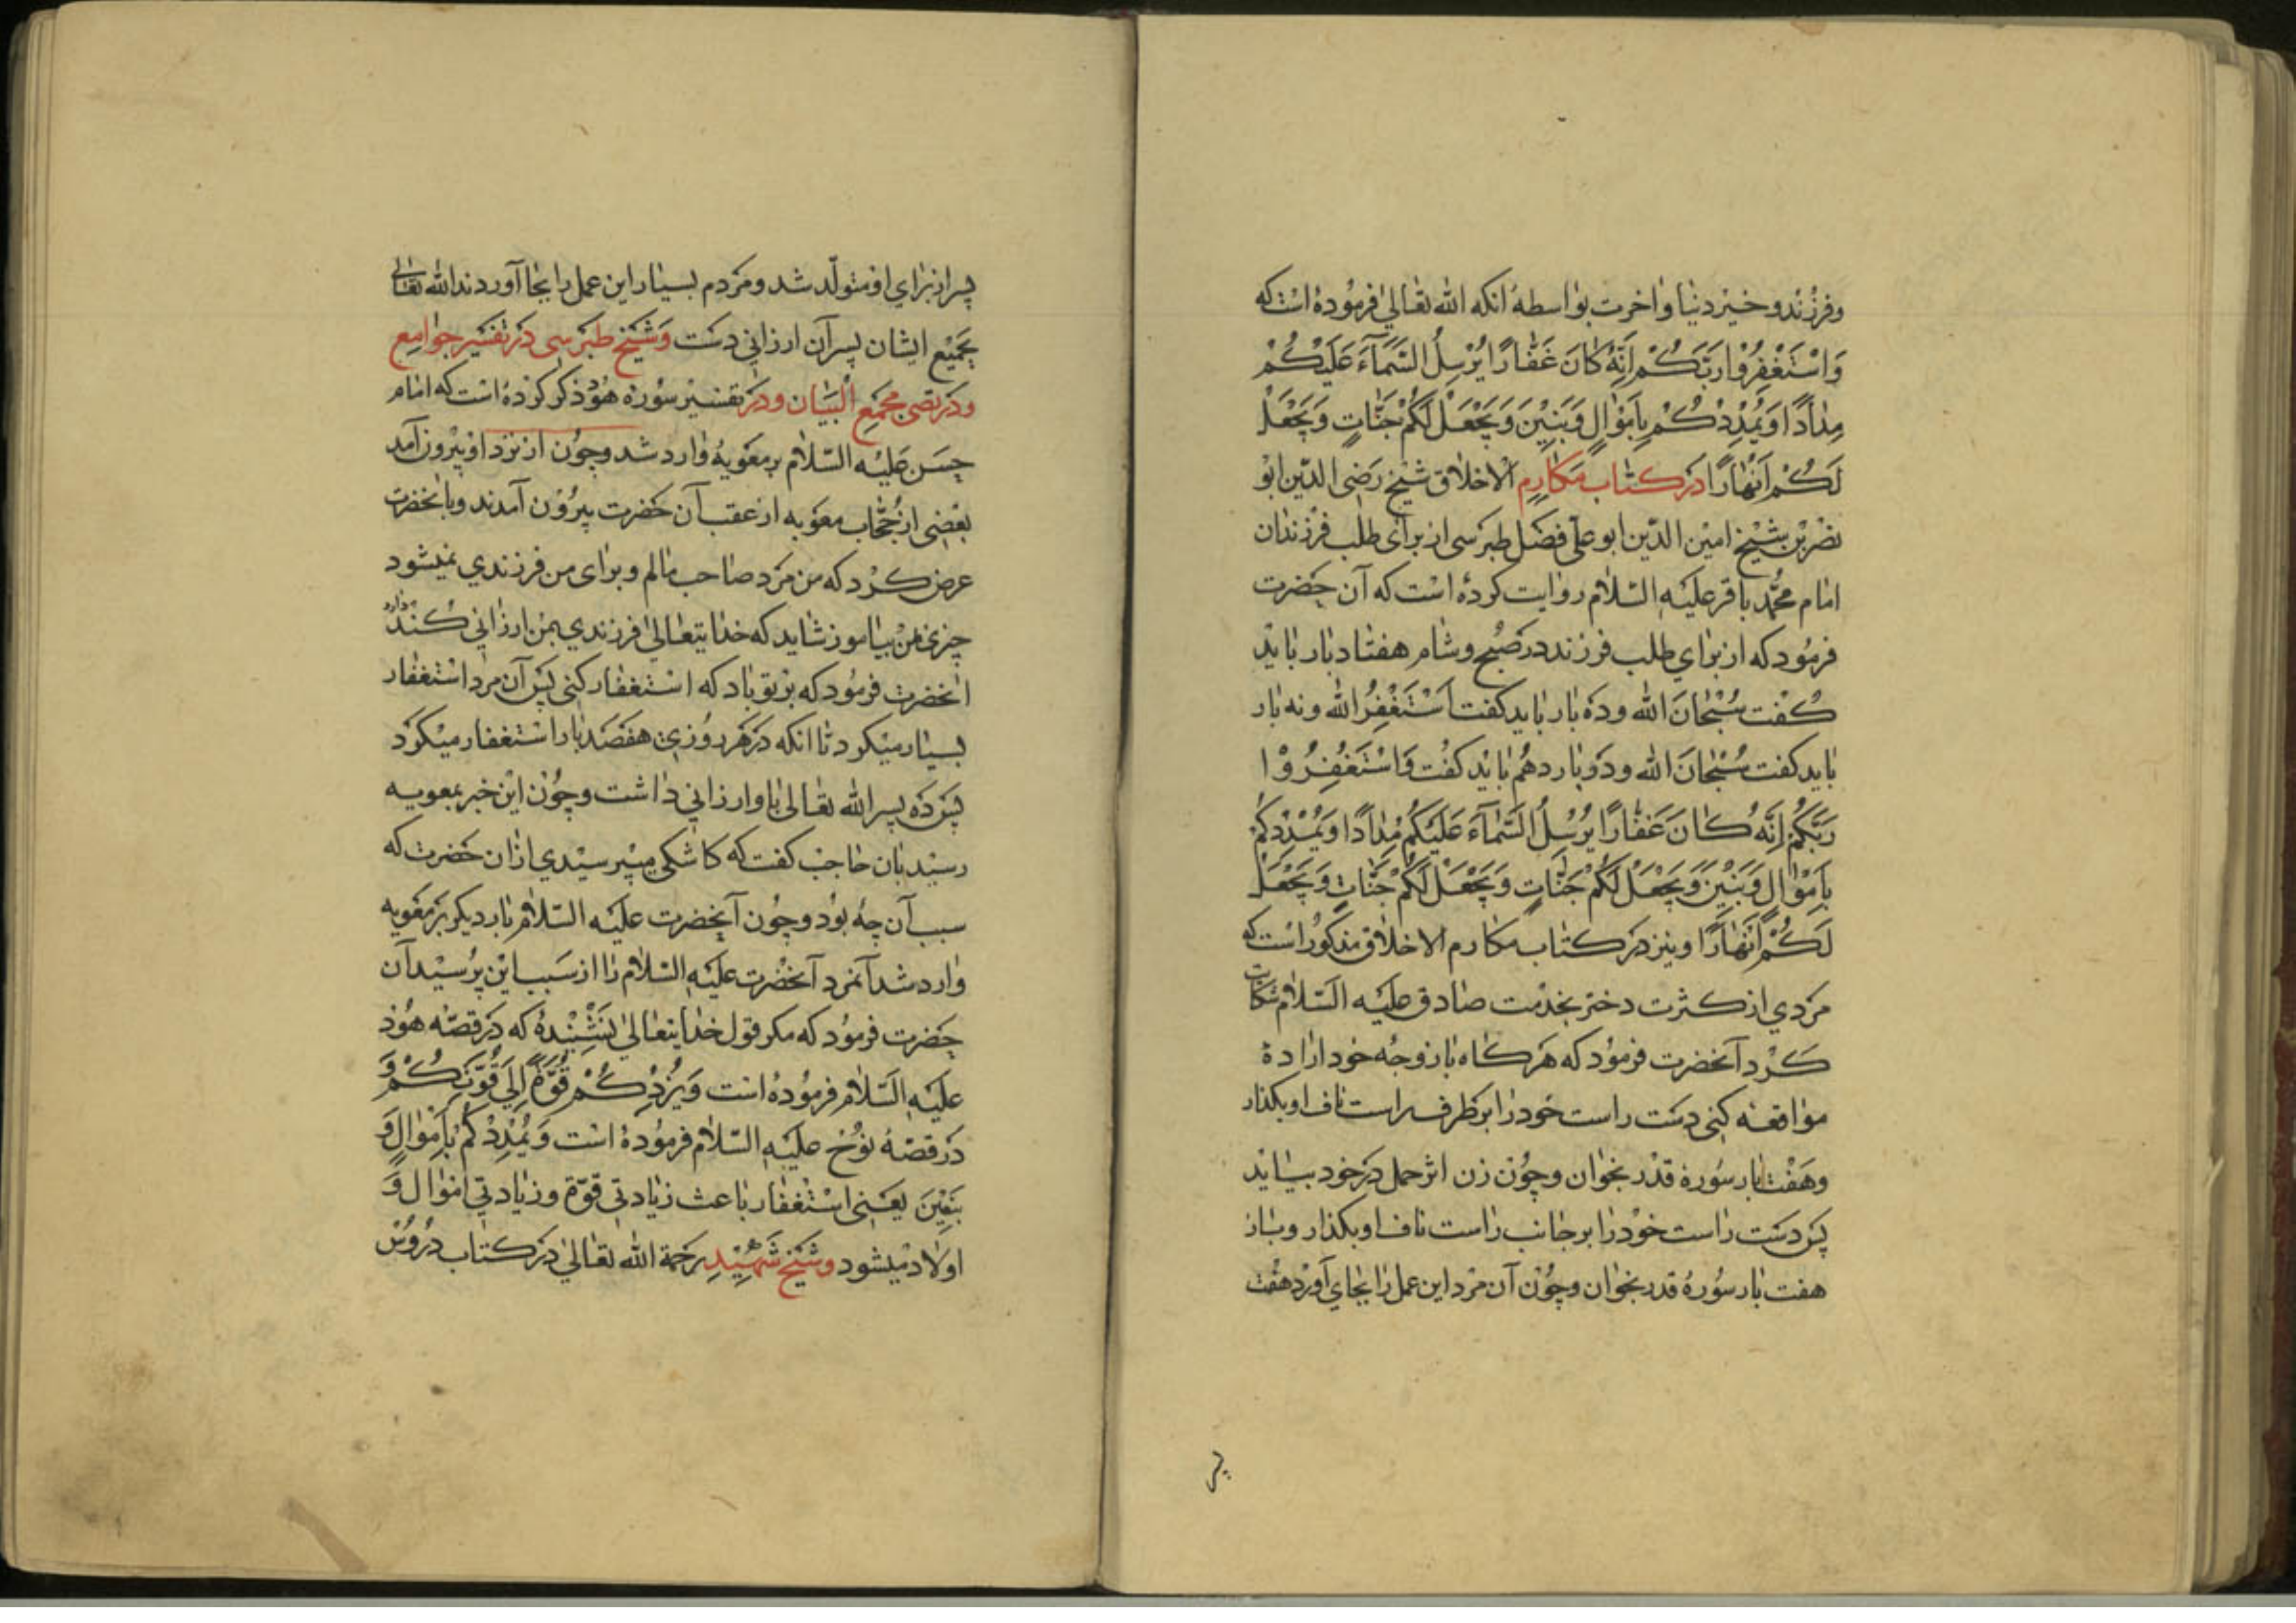 وفرزند و خیر دنیا واخرت بواسطهٔ انکه الله تعالی فرموده است که
وَاسْتَغْفِرُوا رَبَّكُمْ اِنَّهُ كَانَ غَفَّارًا يُرْسِلُ السَّمَآءَ عَلَيْكُمْ
مِدْرَارًا وَيُمْدِدْكُمْ بِاَمْوَالٍ وَبَنِيْنَ وَيَجْعَلْ لَكُمْ جَنَّاتٍ وَيَجْعَلْ
لَكُمْ اَنْهَارًا در کتاب مکارم الاخلاق شیخ رضی الدّین ابو
نصر بن شیخ امین الدّین ابو علی فضل طبرسی از برای طلب فرزندان
امام محمّد باقر علیه السّلام روایت کرده است که آن حضرت
فرمود که از برای طلب فرزند در صبح و شام هفتاد بار باید
کفت سُبْحَانَ الله و ده بار باید کفت اَسْتَغْفِرُ الله و نه بار
باید کفت سُبْحَانَ الله و دو بار دهم باید کفت وَاسْتَغْفِرُوْا
رَبَّكُمْ اِنَّهُ كَانَ غَفَّارًا يُرْسِلُ السَّمَآءَ عَلَيْكُمْ مِدْرَارًا وَيُمْدِدْكُمْ
بِاَمْوَالٍ وَبَنِيْنَ وَيَجْعَلْ لَكُمْ جَنَّاتٍ وَيَجْعَلْ لَكُمْ جَنَّاتٍ وَيَجْعَلْ
لَكُمْ اَنْهَارًا و نیز در کتاب مکارم الاخلاق مذکور است که
مردی از کثرت دختر بخدمت صادق علیه السّلام شکایت
کرد آنحضرت فرمود که هر کاه با زوجه خود ارادهٔ
مواقعه کنی دست راست خود را بر طرف راست ناف او بکذار
و هفت بار سوره قدر بخوان و چون زن اثر حمل در خود بیاید
پس دست راست خود را بر جانب راست ناف او بکذار و باز
هفت بار سورهٔ قدر بخوان و چون آن مرد این عمل را بجای آورد هفت
پسر
پسر از برای او متولّد شد و مردم بسیار این عمل را بجا آوردند الله تعالی
بجمیع ایشان پسرآن ارزانی دشت و شیخ طبرسی در تفسیر جوامع
و در مجمع البیان و در تفسیر سوره هود ذکر کرده است که امام
حسن علیه السّلام بر معویه وارد شد و چون از نزد او بیرون آمد
بعضی از حجّاب معویه از عقب آن حضرت بیرون آمدند و بانحضرت
عرض کرد که من مرد صاحب مالم و برای من فرزندی نمیشود
چیزی بمن بیاموز شاید که خدایتعالی فرزندی بمن ارزانی کند دارد
انحضرت فرمود که بر تو باد که استغفار کنی پس آن مرد استغفار
بسیار میکرد تا انکه در هر روزی هفصد بار استغفار میکرد
پس ده پسر الله تعالی باو ارزانی داشت و چون این خبر بمعویه
رسید بان حاجب کفت که کاشکی میپرسیدی ازان حضرت که
سبب آن چه بود و چون آنحضرت علیه السّلام بار دیکر بر معویه
وارد شد آنمرد آنحضرت علیه السّلام را از سبب این پرسید آن
حضرت فرمود که مکر قول خدایتعالی نشنیدهٔ که در قصّه هود
علیه السّلام فرموده است وَيَزِدْكُمْ قُوَّةً اِلٰى قُوَّتِكُمْ وَ
در قصّهٔ نوح علیه السّلام فرموده است وَيُمْدِدْكُمْ بِاَمْوَالٍ وَ
بَنِيْنَ یعنی استغفار باعث زیادتی قوّة و زیادتی اموال و
اولاد میشود و شیخ شهید رحمة الله تعالی در کتاب دروس